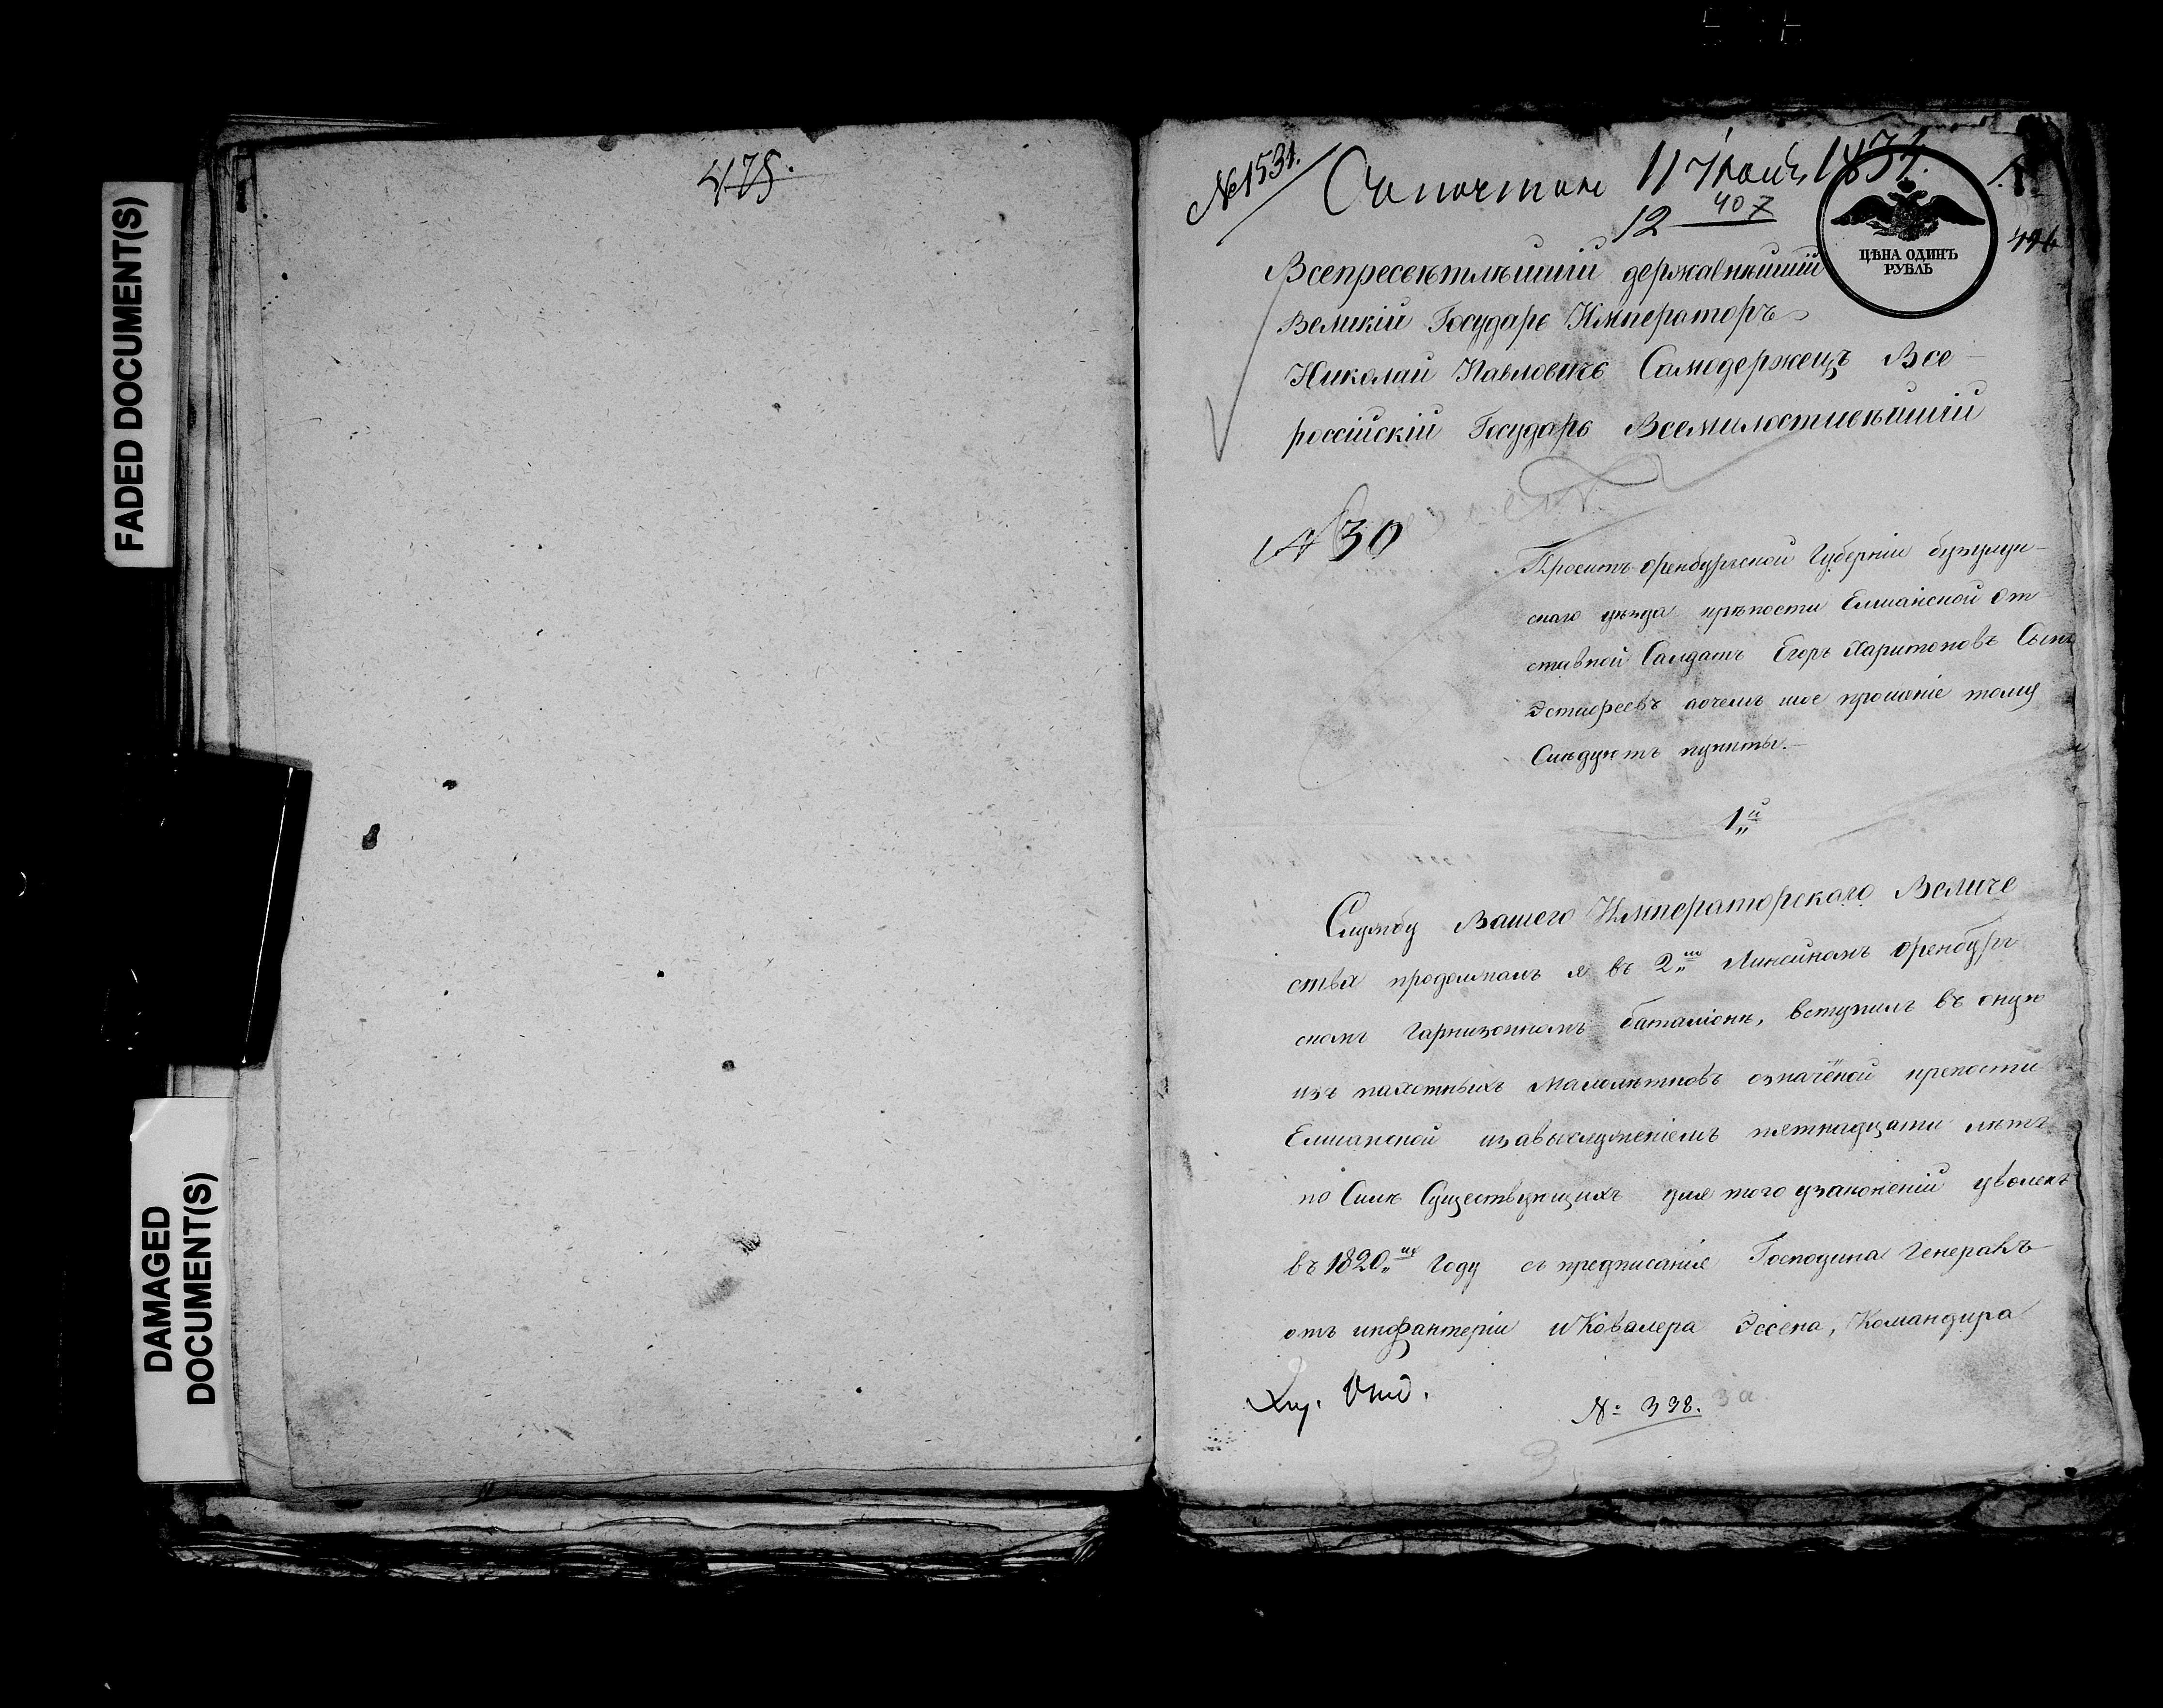 FADED DOCUMENT(S)
DAMAGED
DOCUMENT(S)
475.
№1531.
Съ почтою 11 Июля 1837.
12 407
426
ЦѢНА ОДИНЪ
РУБЛЬ
Всепресветлѣйшій державнѣйшій
Великій Государь Императоръ
Николай Павловичь Самодержецъ Все
россійскій Государь Всемилостивѣйшій
№ 30
Проситъ оренбургской Губерніи бузулук-
скаго уѣзда крѣпости Елшанской От
ставной Салдатъ Егоръ Харитоновъ Сынъ
Эстифеевъ а о чемъ мое прошеніе тому
Слѣдуютъ пункты.-
1й
Службу Вашего Императорскаго Величе
ства продолжалъ я въ 2м Линейномъ Оренбург
скомъ Гарнизонномъ баталіонѣ, вступилъ въ оную
изъ пахотныхъ Малолѣтковъ означеной крепости
Елшанской и завыслуженіемъ пятнадцати лѣтъ
по Силѣ Существующихъ для того узаконеній уволенъ
въ 1820м Году съ предписанія Господина Генералъ
отъ инфантеріи и Ковалера Эссена, Командира
№ 338.
3а